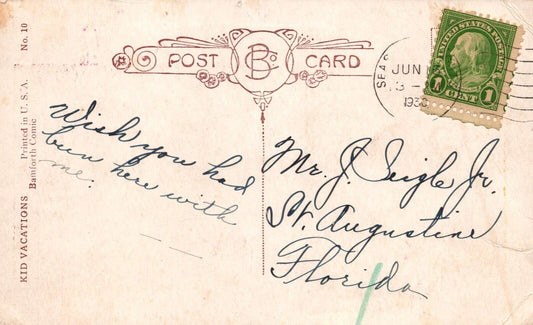 No. 10
Printed in U. S. A.
Bamforth Comic
KID VACATIONS
POST CARD
B Co
UNITED STATES POSTAGE
FRANKLIN
1 CENT 1
JUN
193
Wish you had
been here with
me.
Mr. J. Seigle Jr.
St. Augustine
Florida